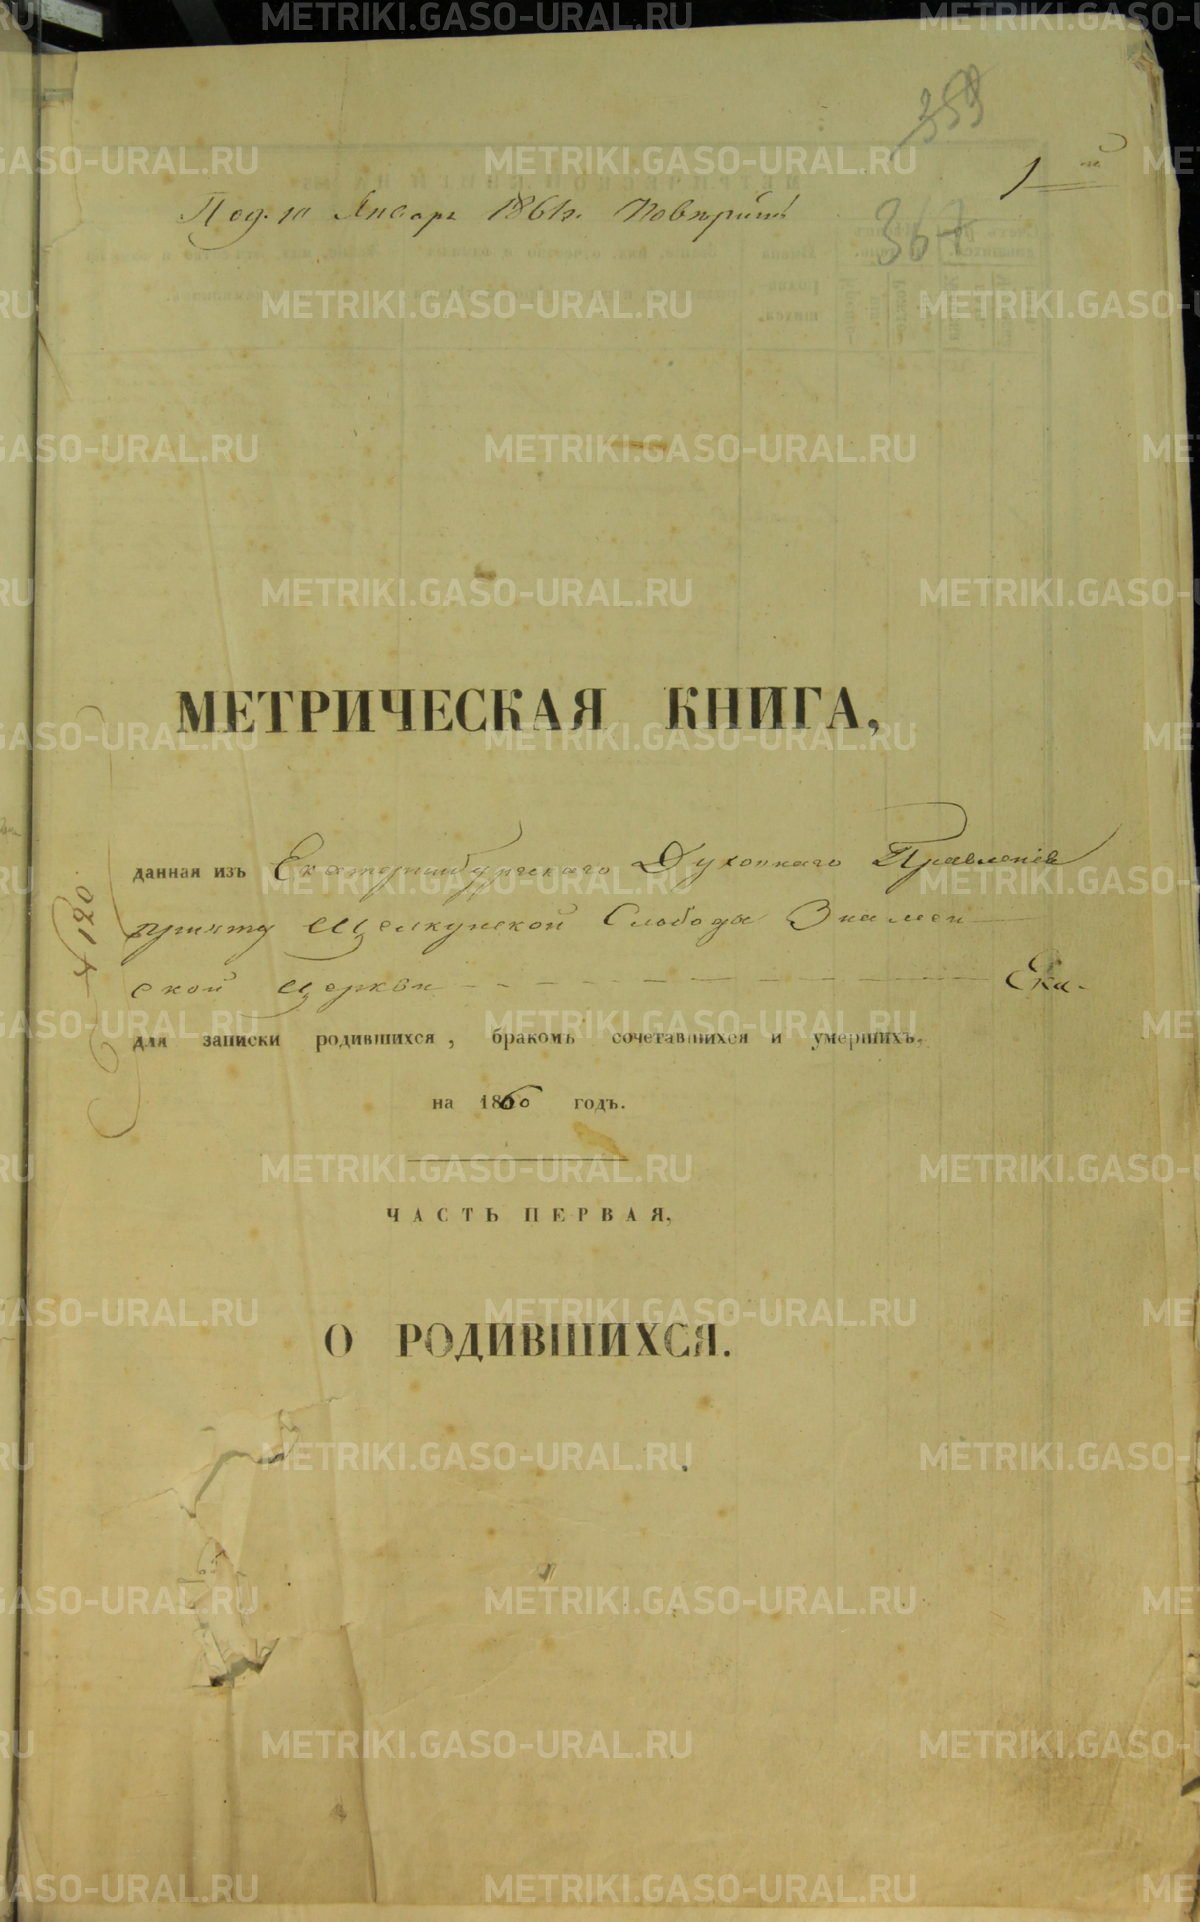 359
1 й
Под. 10 Январ 1861 г. Поверить
367
МЕТРИЧЕСКАЯ КНИГА,
данная изъ Екатеринбургскаго Духовнаго Правленія
причту Щелкунской Слободы Знамен
ской Церкви Ека-
для записки родившихся, бракомъ сочетавшихся и умершихъ,
на 1860 годъ.
ЧАСТЬ ПЕРВАЯ,
О РОДИВШИХСЯ.
120
METRIKI.GASO-URAL.RU